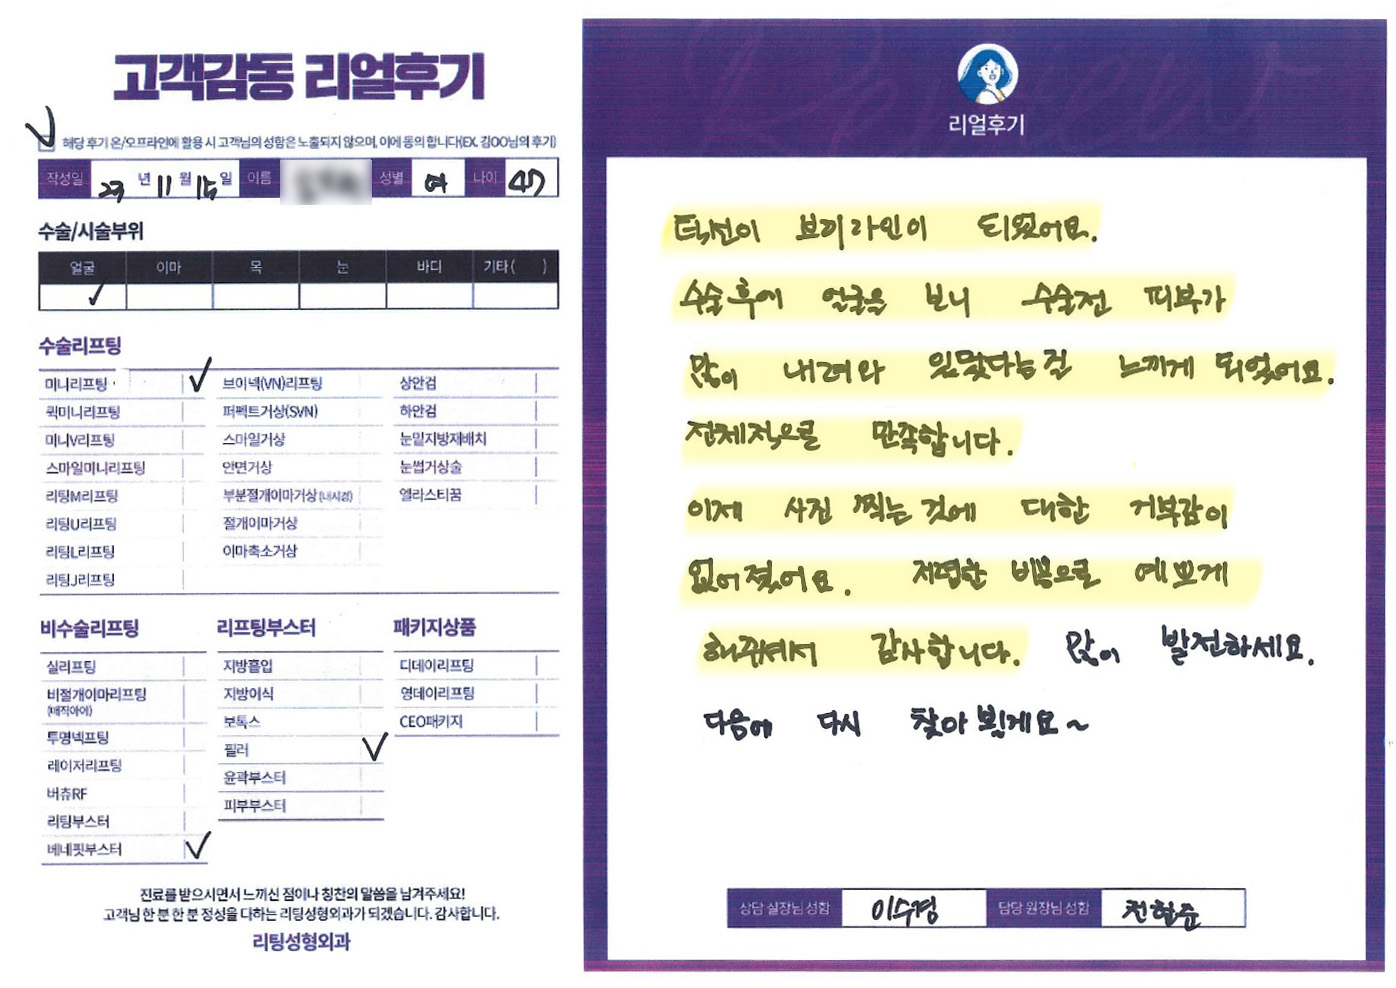 고객감동 리얼후기
해당 후기 온/오프라인에 활용 시 고객님의 성함은 노출되지 않으며, 이에 동의 합니다(EX. 김OO님의 후기)
작성일 23 년 11 월 15 일 이름 성별 여 나이 47
수술/시술부위
얼굴 이마 목 눈 바디 기타 ( )
✓
수술리프팅
미니리프팅 ✓ 브이넥(VN)리프팅 상안검
퀵미니리프팅 퍼펙트거상(SVN) 하안검
미니V리프팅 스마일거상 눈밑지방재배치
스마일미니리프팅 안면거상 눈썹거상술
리팅M리프팅 부분절개이마거상(내시경) 엘라스티꿈
리팅U리프팅 절개이마거상
리팅L리프팅 이마축소거상
리팅J리프팅
비수술리프팅
실리프팅
비절개이마리프팅
(매직아이)
투명넥프팅
레이저리프팅
버츄RF
리팅부스터
베네핏부스터 ✓
리프팅부스터
지방흡입
지방이식
보톡스
필러 ✓
윤곽부스터
피부부스터
패키지상품
디데이리프팅
영데이리프팅
CEO패키지
진료를 받으시면서 느끼신 점이나 칭찬의 말씀을 남겨주세요!
고객님 한 분 한 분 정성을 다하는 리팅성형외과가 되겠습니다. 감사합니다.
리팅성형외과
리얼후기
턱선이 브이라인이 되었어요.
수술후에 얼굴을 보니 수술전 피부가
많이 내려와 있었다는걸 느끼게 되었어요.
전체적으로 만족합니다.
이제 사진 찍는 것에 대한 거부감이
없어졌어요. 저렴한 비용으로 예쁘게
해주셔서 감사합니다. 많이 발전하세요.
다음에 다시 찾아 뵐게요~
상담 실장님 성함 이수경 담당 원장님 성함 전현준